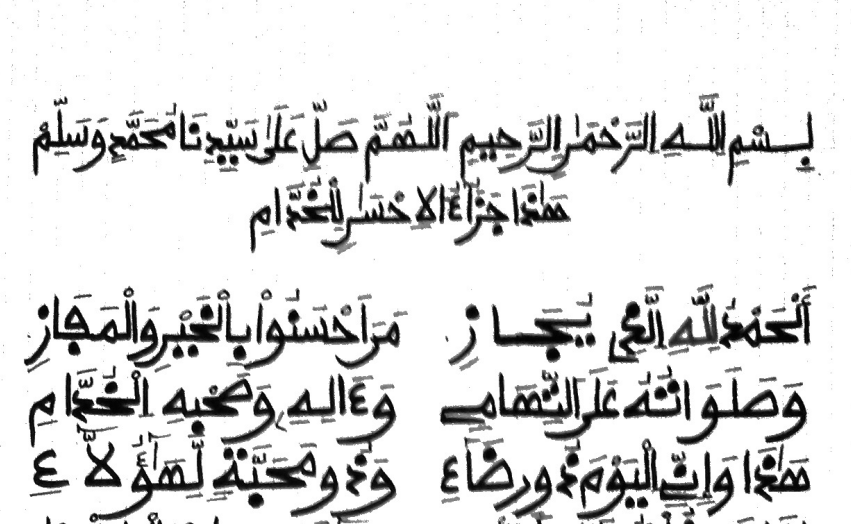 بِسْمِ اللَّهِ الرَّحْمَٰنِ الرَّحِيمِ اللَّهُمَّ صَلِّ عَلَىٰ سَيِّدِنَا مُحَمَّدٍ وَسَلِّمْ
هَٰذَا جَزَاءُ الإحْسَٰنِ لِلْخُدَّامِ
أَلْحَمْدُ لِلَّهِ الَّذِي يُجَازِ مَنَ احْسَنُوا بِالْخَيْرِ وَالْمَفَازِ
وَصَلَوَاتُهُ عَلَى التِّهَامِي وَءَالِهِ وَصَحْبِهِ الْخُدَّامِ
هَٰذَا وَإِنِّي الْيَوْمَ ذُو رِضَاءِ وَذُو مَحَبَّةٍ لِّهَٰؤُلَاءِ